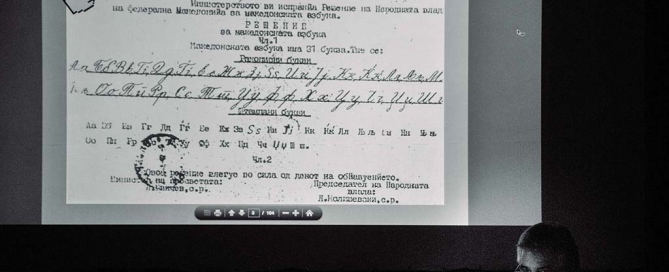 Министерството ви испраќа Решение на Народната влад
на федерална Македонија за македонската азбука.
Р Е Ш Е Н И Е
за македонската азбука
Чл.1
Македонската азбука има 31 буква.Тие се:
Ракописни букви
Аа Бб Вв Гг Дд Ѓѓ Ее Жж Зз Ѕѕ Ии Јј Кк Ќќ Лл
Оо Пп Рр Сс Тт Уу Фф Хх Цц Чч Џџ Ш
Печатани букви
Аа Бб Вв Гг Дд Ѓѓ Ее Жж Зз Ѕѕ Ии Јј Кк Ќќ Лл Љљ Мм Нн Њњ
Оо Пп Рр Уу Фф Хх Цц Чч Џџ Шш.
Чл.2
решение влегуе во сила од денот на
Министер на просветата:
с.р.
Председател на Народната
влада:
Л.Колишевски,с.р.
/ 104